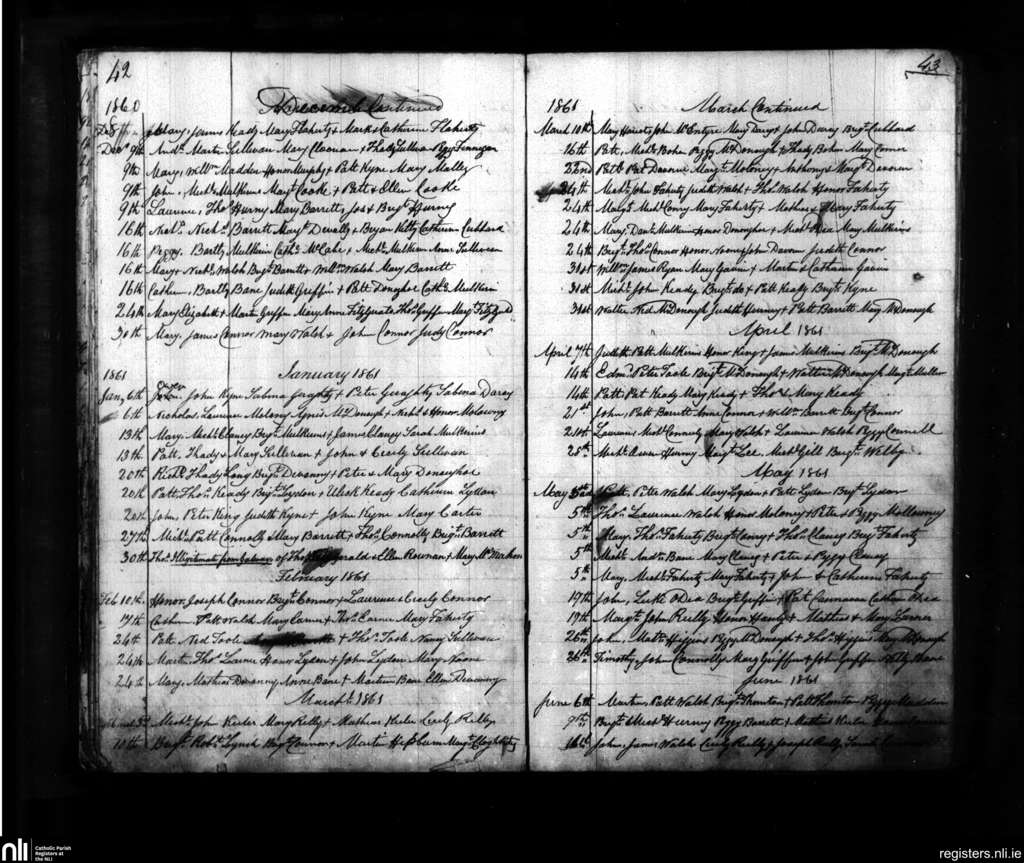 42
1860 December Continued
Dec 9th And. Martin Sullivan Mary Cloonan + Thady Sullivan Peggy Finnegan
9th Mary, Willm Madden Honor Murphy + Patt Kyne Mary Malley
9th John, Michl Mulkerin Margt Cooke + Patt & Ellen Cooke
9th Laurence, Thos Hurny Mary Barrett, Jos & Brigt Hurny
16th Nichs Barrett Margt Devally + Bryan Kitty Catherin Cubbard
16th Peggy Bartly Mulkerin Cathe McCabe + Michl Mulkerin Anne Sullivan
16th Mary + Nichs Walsh Brigt Barrett + Willm Walsh Mary Barrett
16th Cathern, Bartly Bane Judith Griffin + Patt Donohoe Cathe Mulkerin
24th Mary Elizabeth + Martin Griffin Mary Anne Fitzgerald Thos Griffin Mary Fitzgerald
30th Mary, James Connor Mary Walsh + John Connor Judy Connor
1861 January 1861
Jany 6th Owen John Kyne Sabina Geraghty + Peter Geraghty Sabina Darcy
6th Nicholas Laurence Molony Agnes McDonogh + Nichs & Honor Molowny
13th Mary, Michl Clancy Brigt Mulkerins + James Clancy Sarah Mulkerins
13th Patt. Thady & Mary Sullivan + John & Cecily Sullivan
20th Richd Thady Long Brigt Devanny + Peter & Mary Donoghoe
20th Patt. Thos Keady Brigt Lydon + Ulick Keady Catherine Lydon
20th John, Peter King Judith Kyne + John Kyne Mary Carter
27th Michl Patt Connolly Mary Barrett, Thos Connolly Brigt Barrett
30th Thos Illigitimate from Galway of Thos & Ellen + Mary McMahon
February 1861
Feb 10th Honor Joseph Connor Brigt Connor + Laurence & Cecily Connor
17th Cathern Patt Walsh Mary Carnes + Thos Carnes Mary Faherty
24th Patt Ned Toole + Thos Toole Nancy Sullivan
24th Martin Thos Honor Lydon + John Lydon Mary
24th Mary, Mathias Devanny Anne Bane + Martin Bane Ellen Devanny
March 1861
Michl John Keeler Mary Reilly + Mathias Keeler Cecily Reilly
10th Brigt Robt Lynch Brigt Connor + Martin
43
1861 March Continued
March 10th Mary Harriet John McEntyre Mary Darcy + John Darcy Brigt Cubbard
16th Patt, Michl Bohn Peggy McDonough + Thady Bohn Mary Connor
22nd Patt Pat Davoren Margt Moloney + Anthony & Margt Davoren
24th Michl John Faherty Judith Walsh + Thos Walsh Honor Faherty
24th Margt Michl Conry Mary Faherty + Mathias & Mary Faherty
24th Mary, Danl Mulkerin Honor Donoghoe + Michl Dea Mary Mulkerins
24th Brigt Thos Connor Honor Noone John Davoren Judith Connor
31st Willm James Ryan Mary Gavin + Martin & Catharin Gavin
31st Michl John Keady Brigt do + Patt Keady Brigt Kyne
31st Walter Ned McDonogh Judith Hurny + Patt Barrett Mary McDonough
April 1861
April 7th Judith Patt Mulkerins Honor King + James Mulkerins Brigt McDonough
14th Edmd Peter Toole Brigt McDonough + Walter McDonough Margt Mullen
14th Patt Pat Keady Mary Keady + Thos & Mary Keady
21st John, Patt Barrett Anne Connor + Willm Barrett Brigt Connor
21st Laurence Michl Conneely Mary Walsh + Laurence Walsh Peggy Connell
28th Michl Owen Hurny Margt Lee. Michl Gill Brigt Welby
May 1861
May Patt, Peter Walsh Mary Lydon + Patt Lydon Brigt Lydon
5th Thos Laurence Walsh Honor Moloney + Peter & Peggy Mollowney
5th Mary, Thos Faherty Brigt Clancy + Thos Clancy Brigt Faherty
5th Michl Andw Bane Mary Clancy + Peter & Peggy Clancy
5th Mary, Michl Faherty Mary Faherty + John & Catherine Faherty
19th John, Luke ODea Brigt Griffin + Pat Cathern Ohea
19th Margt John Reilly Honor Hanly + Mathias & Mary Connor
26th John Matt Higgins Peggy McDonogh + Thos Higgins Mary McDonogh
26th Timothy, John Connolly Mary Griffin + John Griffin
June 1861
June 6th Martin Patt Walsh Brigt Thornton + Patt Thornton Peggy Madden
9th Brigt Michl Hurny Peggy Barrett + Mathias Keeler
16th John, James Walsh Cecily Reilly + Joseph Reilly Sarah
nli
Catholic Parish
Registers at
the NLI
registers.nli.ie